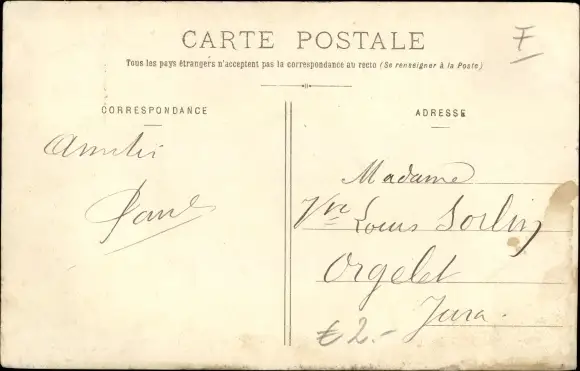 CARTE POSTALE
F
Tous les pays étrangers n'acceptent pas la correspondance au recto (Se renseigner à la Poste)
CORRESPONDANCE
ADRESSE
Amitié
Paul
Madame
Vve Louis Sorlin
Orgelet
Jura.
€ 2.-